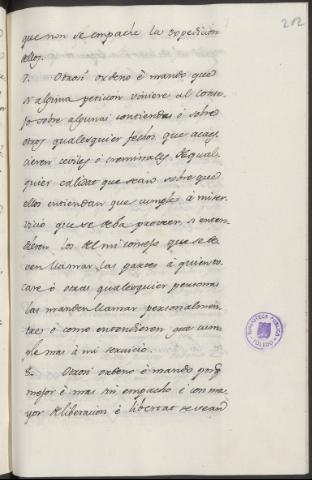 202
que non se empache la expedicion
dellos.
7. Otrosi ordeno è mando que
si alguna peticion viniere al conse-
jo sobre algunas contiendas ò sobre
otros qualesquier fechos que acaes-
cieren ceviles ó creminales, de qual-
quier calidad que sean sobre que
ellos entiendan que cumple à mi ser-
vicio que se deba proveer, si enten-
dieren los del mi consejo que se de-
ven llamar las partes à quien to-
care è otras qualesquier personas
las manden llamar personalmen-
tre, ò como entendieren que cum-
ple mas à mi servicio.
8. Otrosi ordeno è mando porq.
mejor è mas sin empacho è con ma-
yor deliberacion è libertat se vean
BIBLIOTECA PUBLICA
TOLEDO